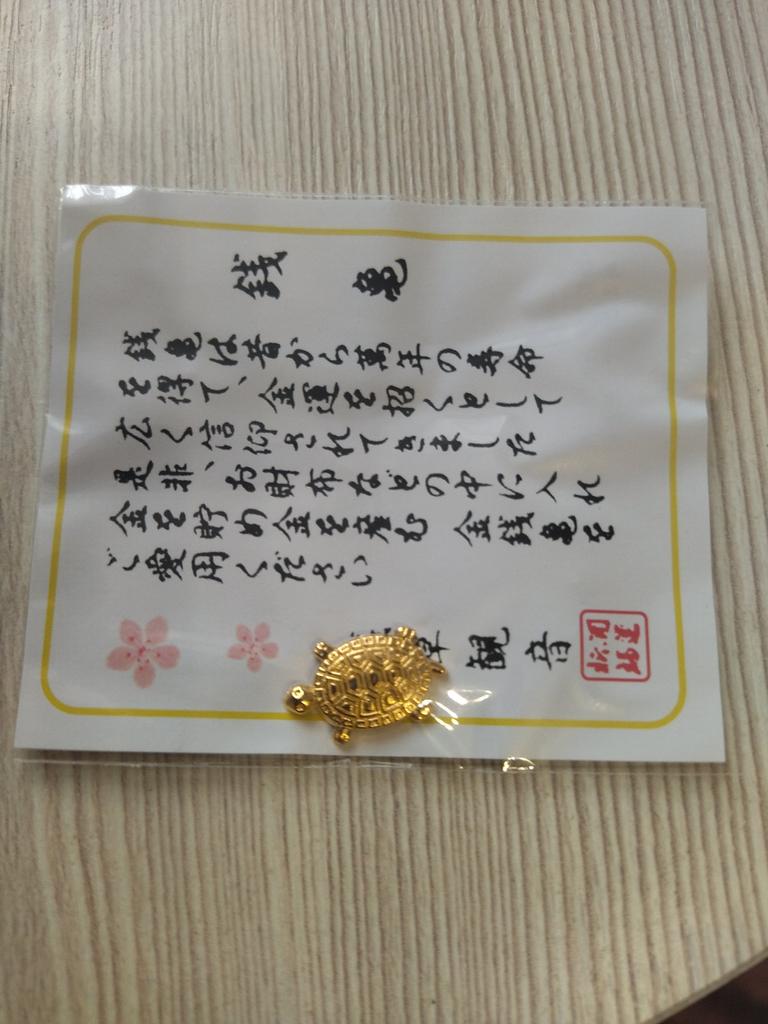 銭亀
銭亀は昔から萬年の寿命
を得て、金運を招くとして
広く信仰されてきました
是非、お財布などの中に入れ
金を貯め金を産む 金銭亀を
ご愛用ください
草観音